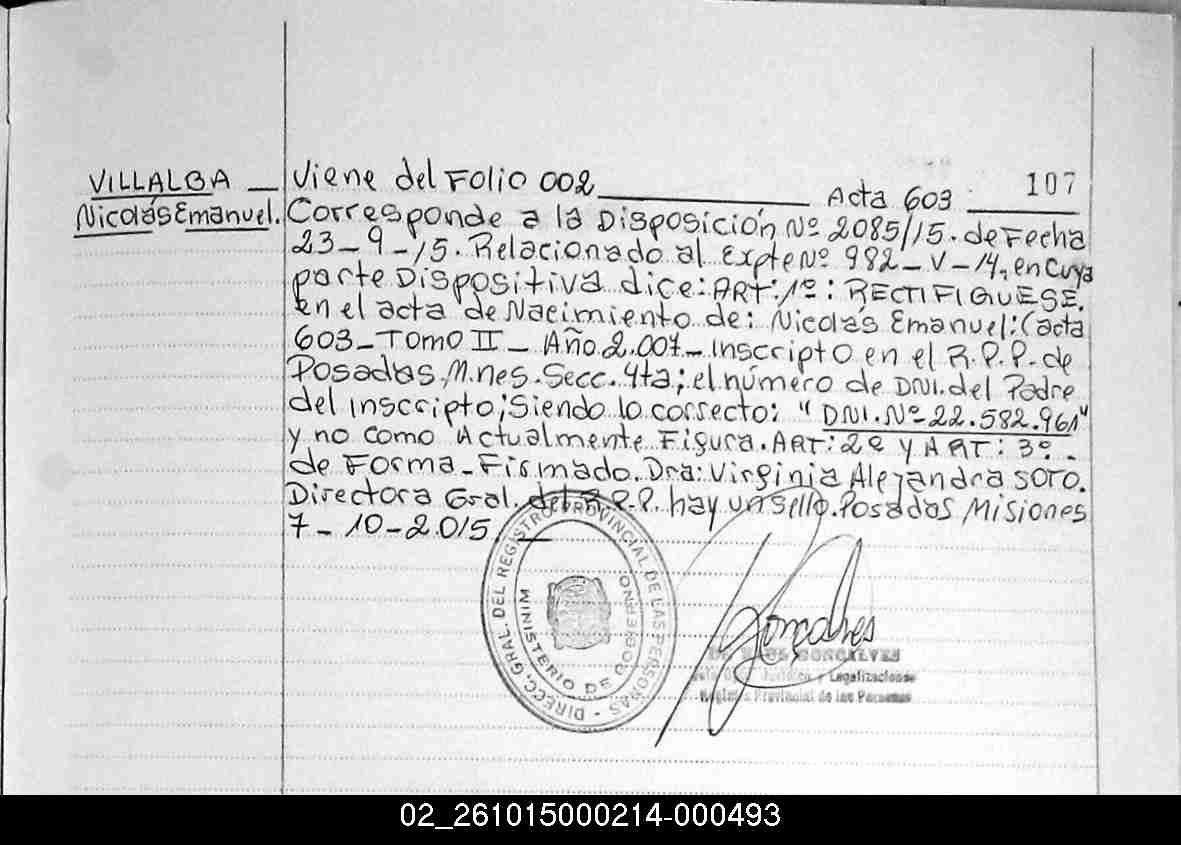 VILLALBA
Nicolás Emanuel.
Viene del Folio 002 Acta 603 107
Corresponde a la Disposición Nº 2085/15. de Fecha
23-9-15. Relacionado al Expte Nº 982-V-14, en Cuya
parte Dispositiva dice: ART: 1º: RECTIFIQUESE.
en el acta de Nacimiento de: Nicolás Emanuel: (acta
603_Tomo II_ Año 2.007_ inscripto en el R.P.P. de
Posadas. M.nes. Secc. 4ta; el número de DNI. del Padre
del inscripto; Siendo lo correcto: "DNI. Nº 22.582.961"
y no como Actualmente Figura. ART: 2º y ART: 3º._
de Forma_Firmado. Dra: Virginia Alejandra Soto.
Directora Gral. del R.P.P. hay un Sello. Posadas Misiones
7-10-2.015.
DIRECC. GRAL. DEL REGISTRO PROVINCIAL DE LAS PERSONAS -
MINISTERIO DE GOBIERNO
Gonçalves
GONCALVES
y Legalizaciones
Provincial de las Personas
02_261015000214-000493